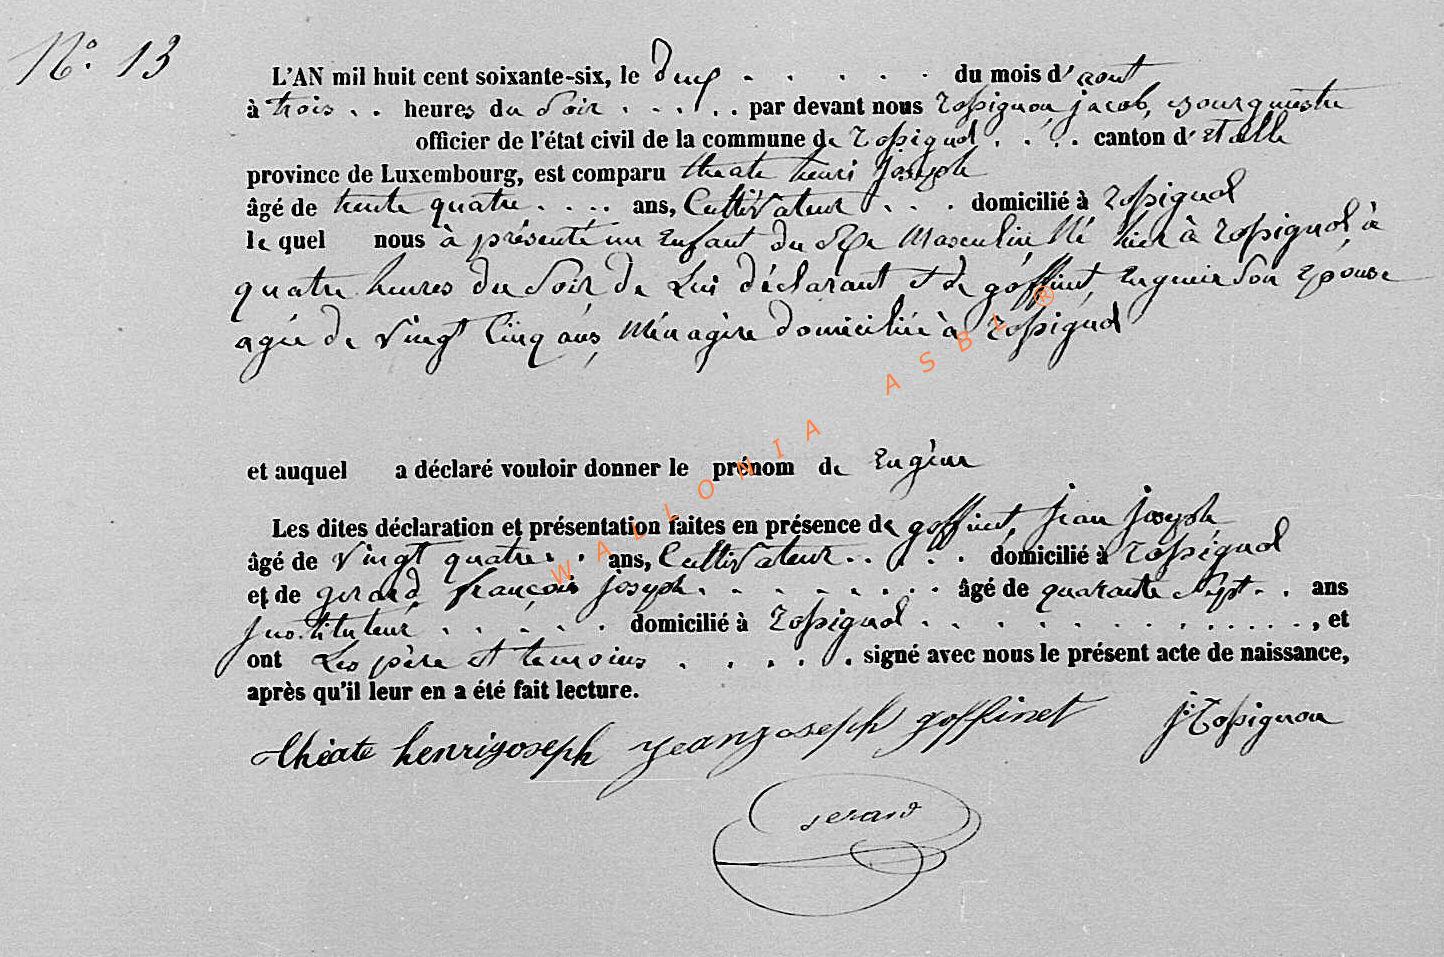 N° 13
L'AN mil huit cent soixante-six, le deux . . . . . du mois d'aout
à trois . . heures du Soir . . . . . par devant nous Rossignon, jacob, Bourgmestre
officier de l'état civil de la commune de Rossignol . . . . canton d'Etalle
province de Luxembourg, est comparu theate henri Joseph
âgé de trente quatre . . . . ans, Cultivateur . . . domicilié à Rossignol
le quel nous à présenté un Enfant du sexe Masculin, Né hier à Rossignol, à
quatre heures du Soir de Lui déclarant et de goffinet, Eugenie Son Epouse
agée de Vingt Cinq ans, Ménagère domiciliée à Rossignol
et auquel a déclaré vouloir donner le prénom de Eugène
Les dites déclaration et présentation faites en présence de goffinet, Jean Joseph
âgé de Vingt quatre . . ans, Cultivateur . . . . . domicilié à Rossignol
et de gerard françois joseph . . . . . . . . . âgé de quarante Sept . . ans
Instituteur . . . . . . domicilié à Rossignol . . . . . . . . . . . . . . , et
ont Les père et temoins . . . . . signé avec nous le présent acte de naissance,
après qu'il leur en a été fait lecture.
théate henrijoseph jeanjoseph goffinet J: Rossignon
gerard
WALLONIA ASBL ®